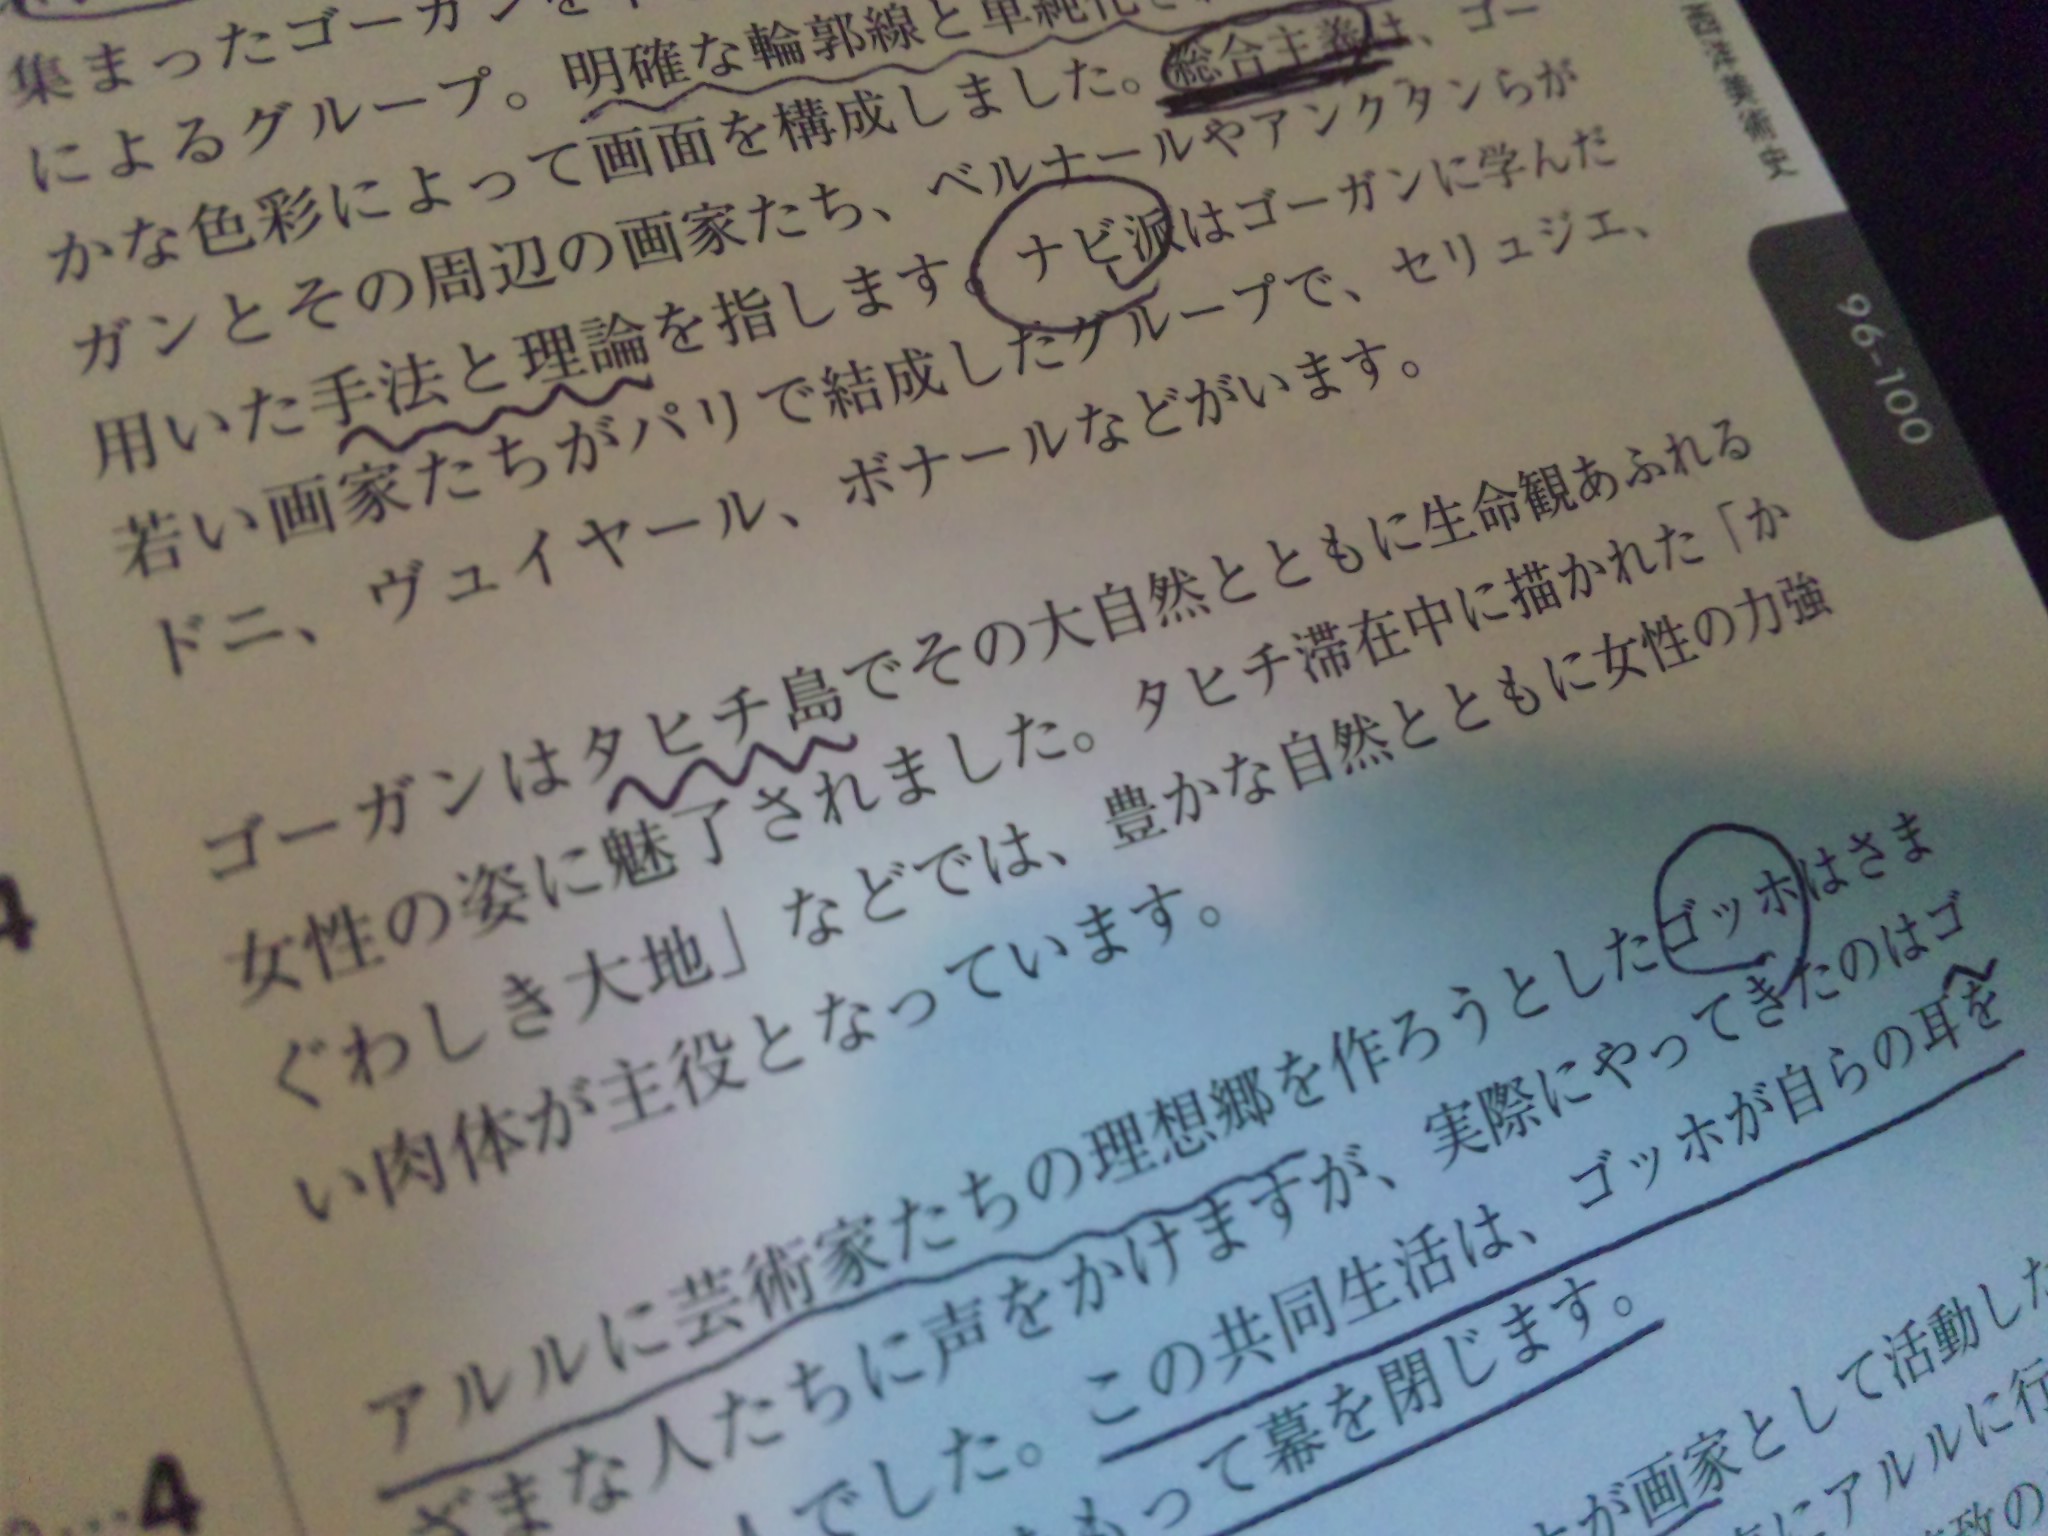 集まったゴーガンを
によるグループ。明確な輪郭線と単純化さ
かな色彩によって画面を構成しました。総合主義は、ゴー
ガンとその周辺の画家たち、ベルナールやアンクタンらが
用いた手法と理論を指します。ナビ派はゴーガンに学んだ
若い画家たちがパリで結成したグループで、セリュジエ、
ドニ、ヴュイヤール、ボナールなどがいます。
ゴーガンはタヒチ島でその大自然とともに生命観あふれる
女性の姿に魅了されました。タヒチ滞在中に描かれた「か
ぐわしき大地」などでは、豊かな自然とともに女性の力強
い肉体が主役となっています。
アルルに芸術家たちの理想郷を作ろうとしたゴッホはさま
ざまな人たちに声をかけますが、実際にやってきたのはゴ
人でした。この共同生活は、ゴッホが自らの耳を
もって幕を閉じます。
が画家として活動した
にアルルに行
致の
西洋美術史
96-100
4
4